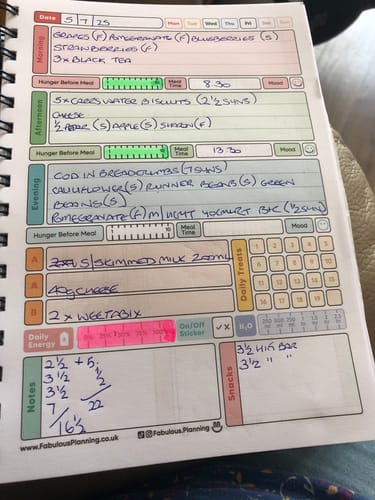 Date 5/7/25 Mon Tues Wed Thu Fri Sat Sun
Morning
GRAPES (F) POMEGRANATE (F) BLUEBERRIES (S)
STRAWBERRIES (F)
3 x BLACK TEA
Hunger Before Meal 10 Meal Time 8.30 Mood
Afternoon
5 x CARRS WATER BISCUITS (2 ½ SYNS)
CHEESE
½ PEAR (S) APPLE (S) SHARON (F)
Hunger Before Meal 10 Meal Time 13.30 Mood
Evening
COD IN BREADCRUMBS (7 SYNS)
CAULIFLOWER (S) RUNNER BEANS (S) GREEN
BEANS (S)
POMEGRANATE (F) M/LIGHT YOGHURT B+C (½ SYN)
Hunger Before Meal 10 Meal Time Mood
A SKIMMED MILK 200ML
A 40g CHEESE
B 2 x WEETABIX
Daily Treats
1 2 3 4 5
6 7 8 9 10
11 12 13 14 15
16 17 18 19
Daily Energy 0% 25% 50% 75% 100% On/Off Sticker ✓ X H₂O
Notes
2 ½ + 5.
3 ½ ½
3 ½ 22
7
16 ½
Snacks
3 ½ HIFI BAR
3 ½ " "
www.FabulousPlanning.co.uk Fabulous.Planning